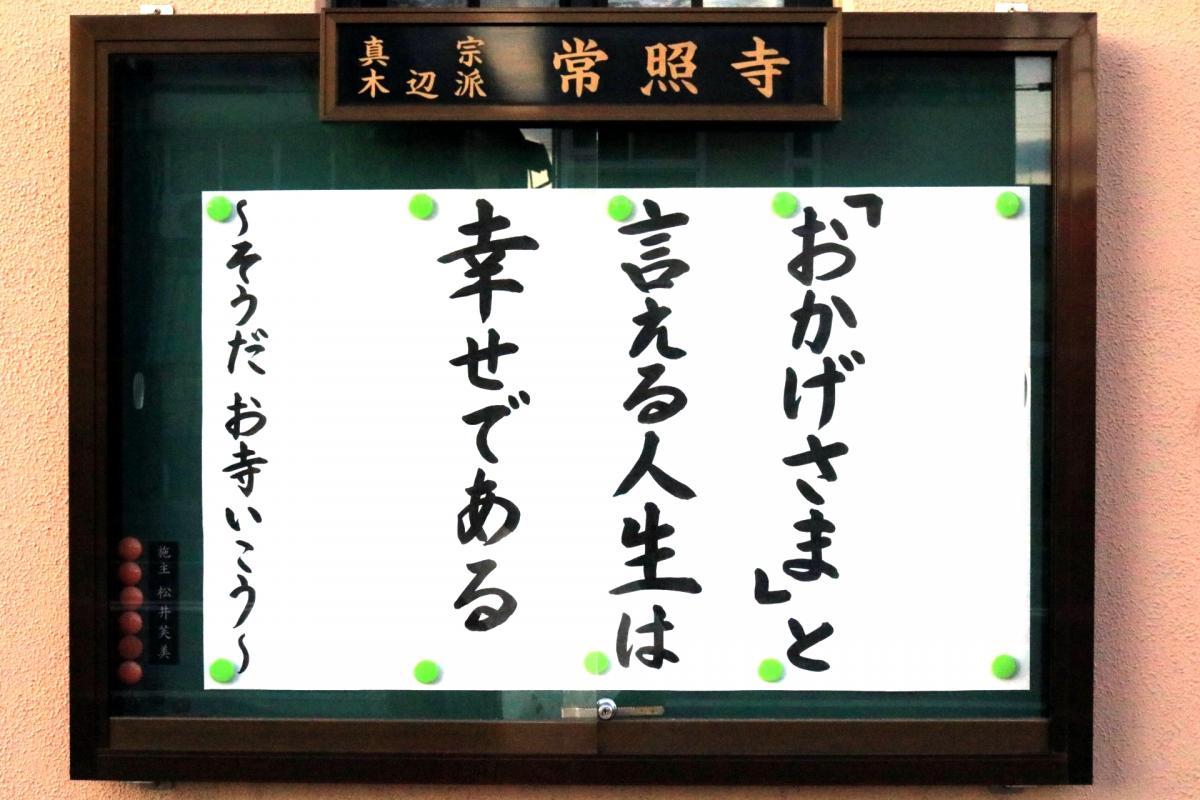 真宗
木辺派
常照寺
「おかげさま」と
言える人生は
幸せである
〜そうだ お寺いこう〜
施主 松井芙美